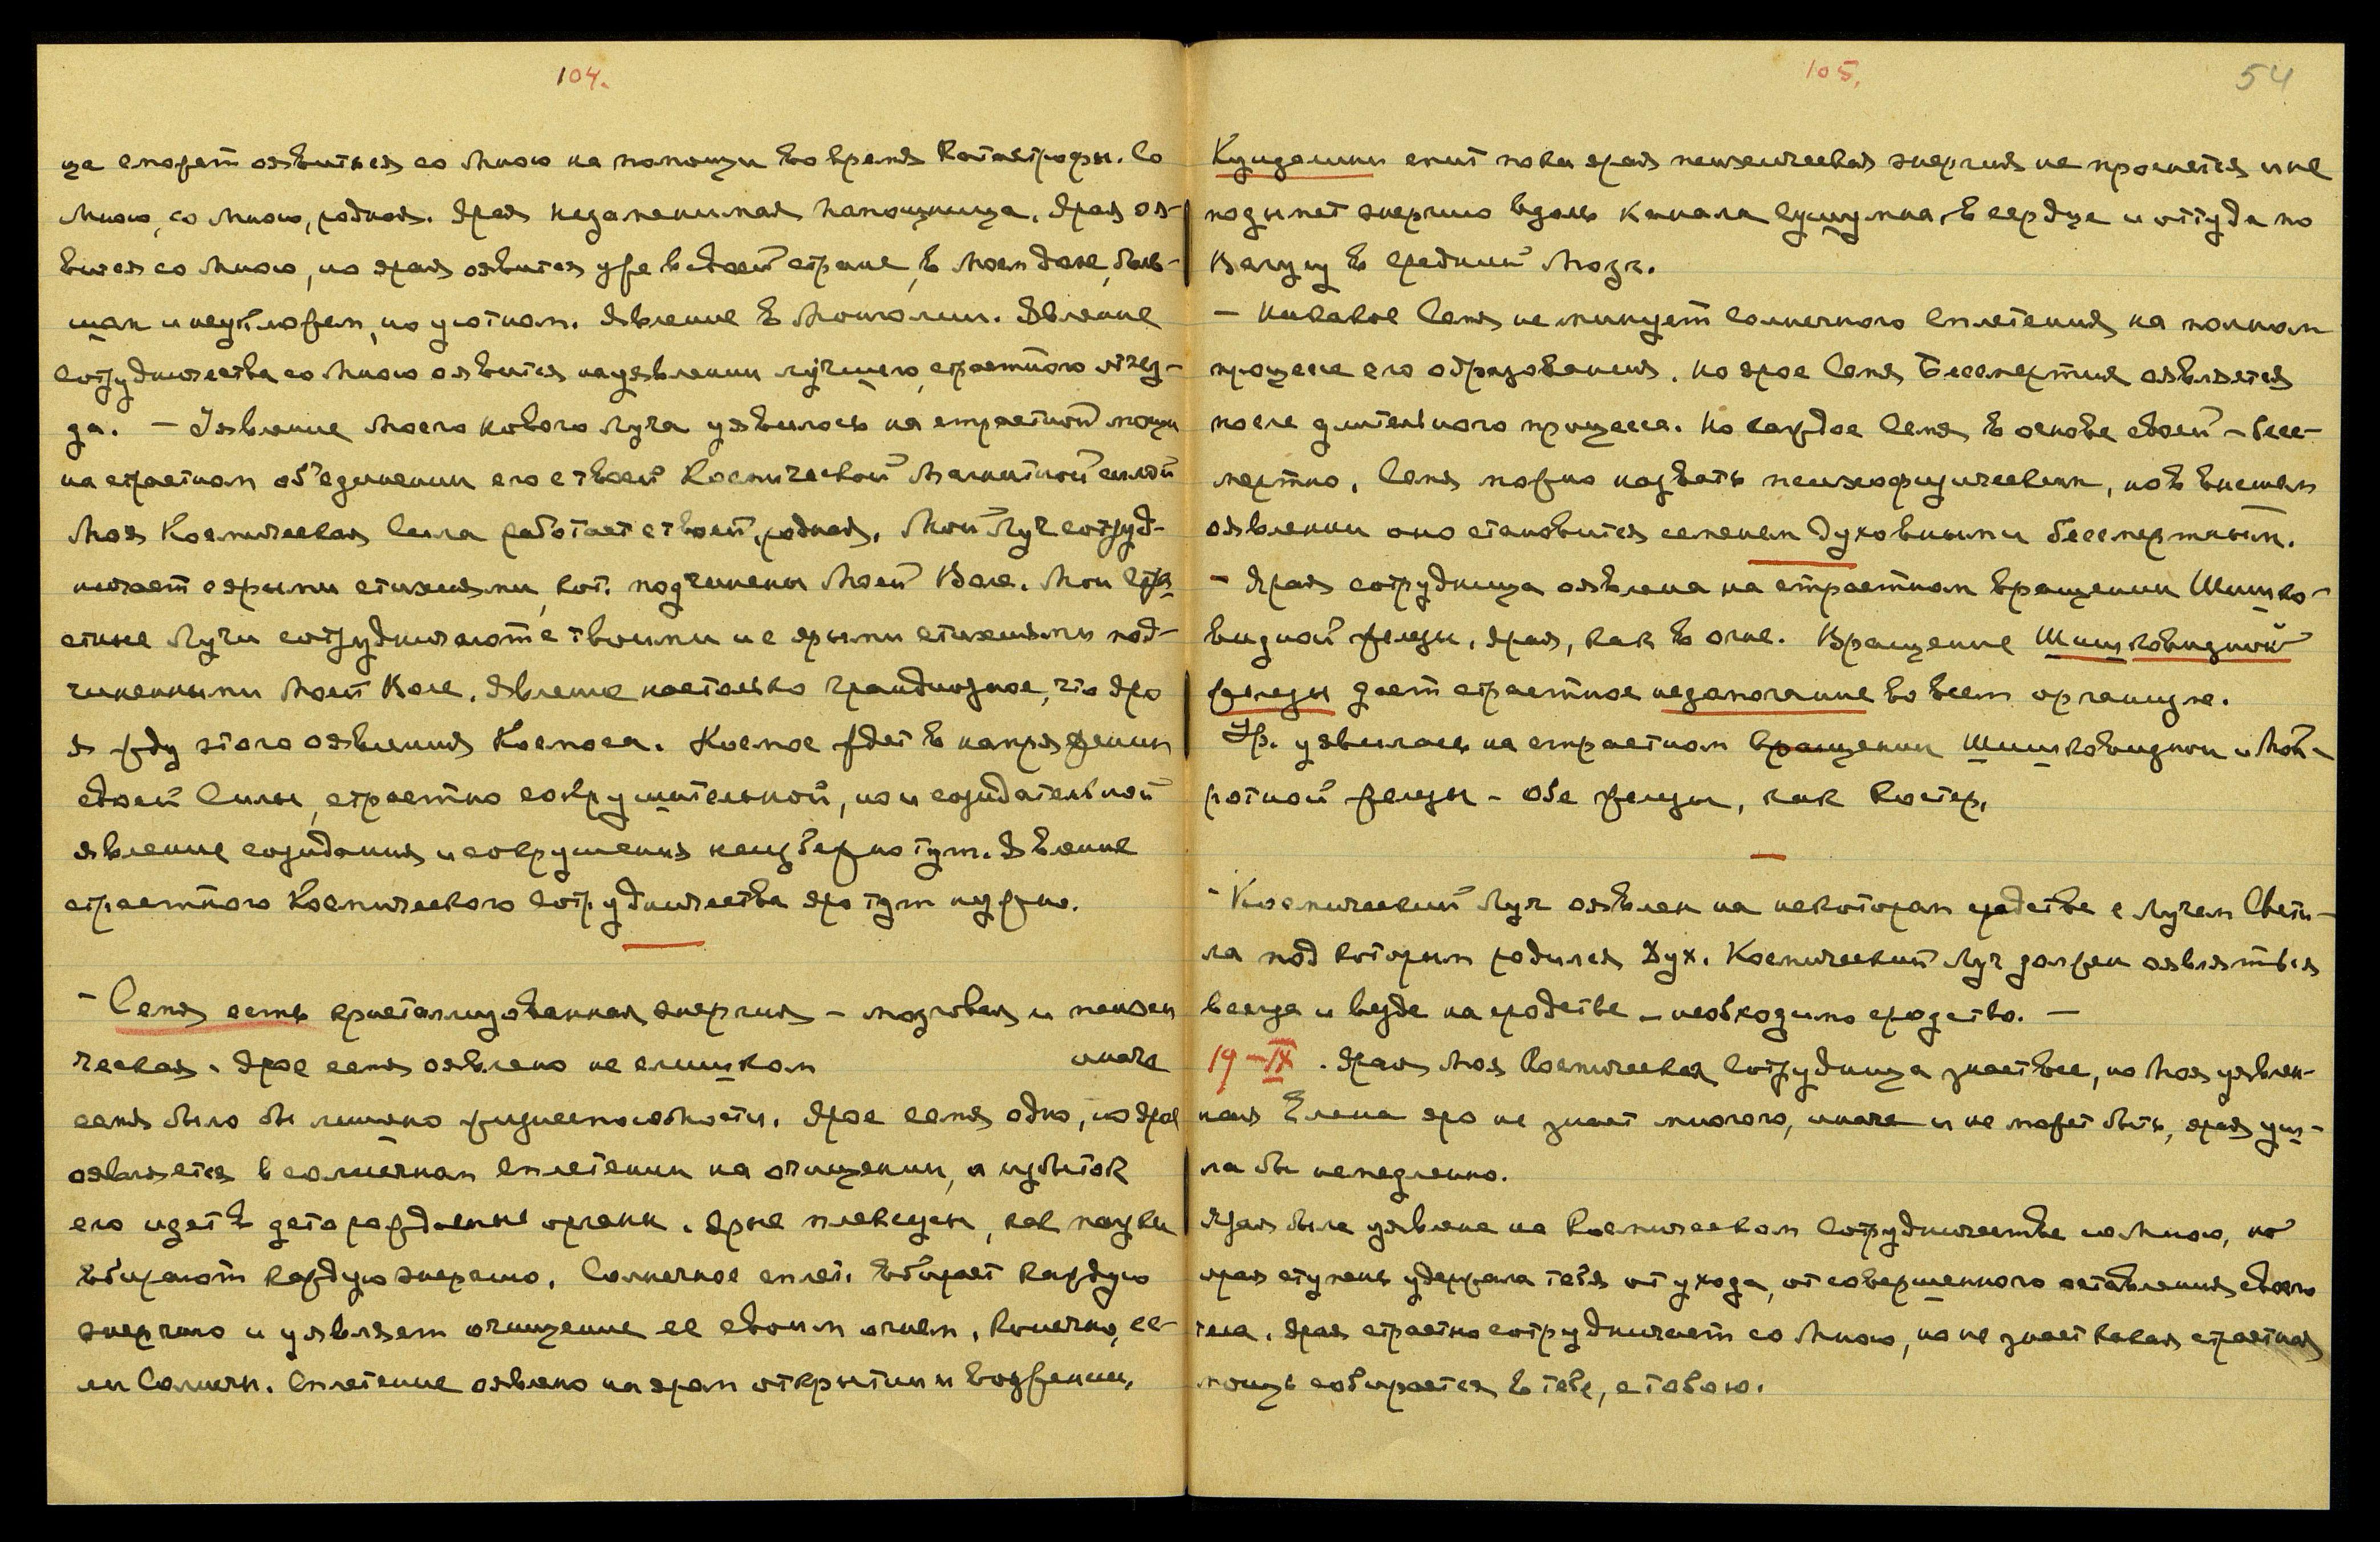 104.
ца сможет оявиться со Мною на помощи во время Катастрофы. Со
Мною, со Мною, родная. Ярая незаменимая помощница. Ярая оя-
вится со Мною, но ярая оявится уже в своей стране, в Моем доме, боль-
шом и неуклюжем, но уютном. Явление в Монголии. Явление
сотрудничества со Мною оявится на уявлении лучшего, страстного отъез-
да. – Уявление Моего нового Луча уявилось на страстной мощи
на страстном об'единении его с твоей Космической Магнитной силой
Моя Космическая Сила работает с твоей, родная. Мой Луч сотруд-
ничает с ярыми стихиями, кот. подчинены Моей Воле. Мои
Лучи сотрудничают с твоими и с ярыми стихиями под-
чиненными Моей Воле. Явление настолько грандиозное, что яро
я жду этого оявления Космоса. Космос ждет в напряжении
своей Силы, страстно сокрушительной, но и созидательной
явление созидания и сокрушения неизбежно тут. Явление
страстного Космического сотрудничества яро тут нужно.
– Семя есть кристаллизованная энергия – мозговая и психи
ческая. Ярое семя оявлено не слишком иначе
семя было бы лишено жизнеспособности. Ярое семя одно, но ярое
оявляется в солнечном сплетении на очищении, и избыток
его идет в детородные органы. Ярые плексусы, как пауки
вбирают каждую энергию. Солнечное сплет. вбирает каждую
энергию и уявляет очищение ее своим огнем, конечно, ес-
ли Солнечн. Сплетение оявлено на яром открытии и возжении.
105.
54
Кундалини спит пока ярая психическая энергия не проснется и не
подымет энергию вдоль канала Сушумна, в сердце и оттуда по
Вагусу в средний Мозг.
– Никакое Семя не минует солнечного сплетения на полном
процессе его образования. Но ярое Семя Бессмертия оявляется
после длительного процесса. Но каждое Семя в основе своей – бесс-
мертно. Семя можно назвать психофизическим, но в высшем
оявлении оно становится семенем духовным и бессмертным.
– Ярая сотрудница оявлена на страстном вращении Шишко-
видной железы, ярая, как в огне. Вращение Шишковидной
железы дает страстное недомогание во всем организме.
Ур. уявилась на страстном вращении шишковидной и Мок-
ротной железы – обе железы, как костер.
– Космический Луч оявлен на некотором сродстве с Лучем Свети-
ла под которым родился Дух. Космический Луч должен оявляться
всегда и везде на сродстве – необходимо сродство. –
19–IX. Ярая Моя Космическая Сотрудница знает все, но Моя уявлен-
ная Елена яро не знает многого, иначе и не может быть, ярая уш-
ла бы немедленно.
Ярая была уявлена на Космическом Сотрудничестве со Мною, но
ярая ступень удержала тебя от ухода, от совершенного оставления своего
тела. Ярая страстно сотрудничает со Мною, но не знает какая страстная
мощь собирается в тебе, с тобою.